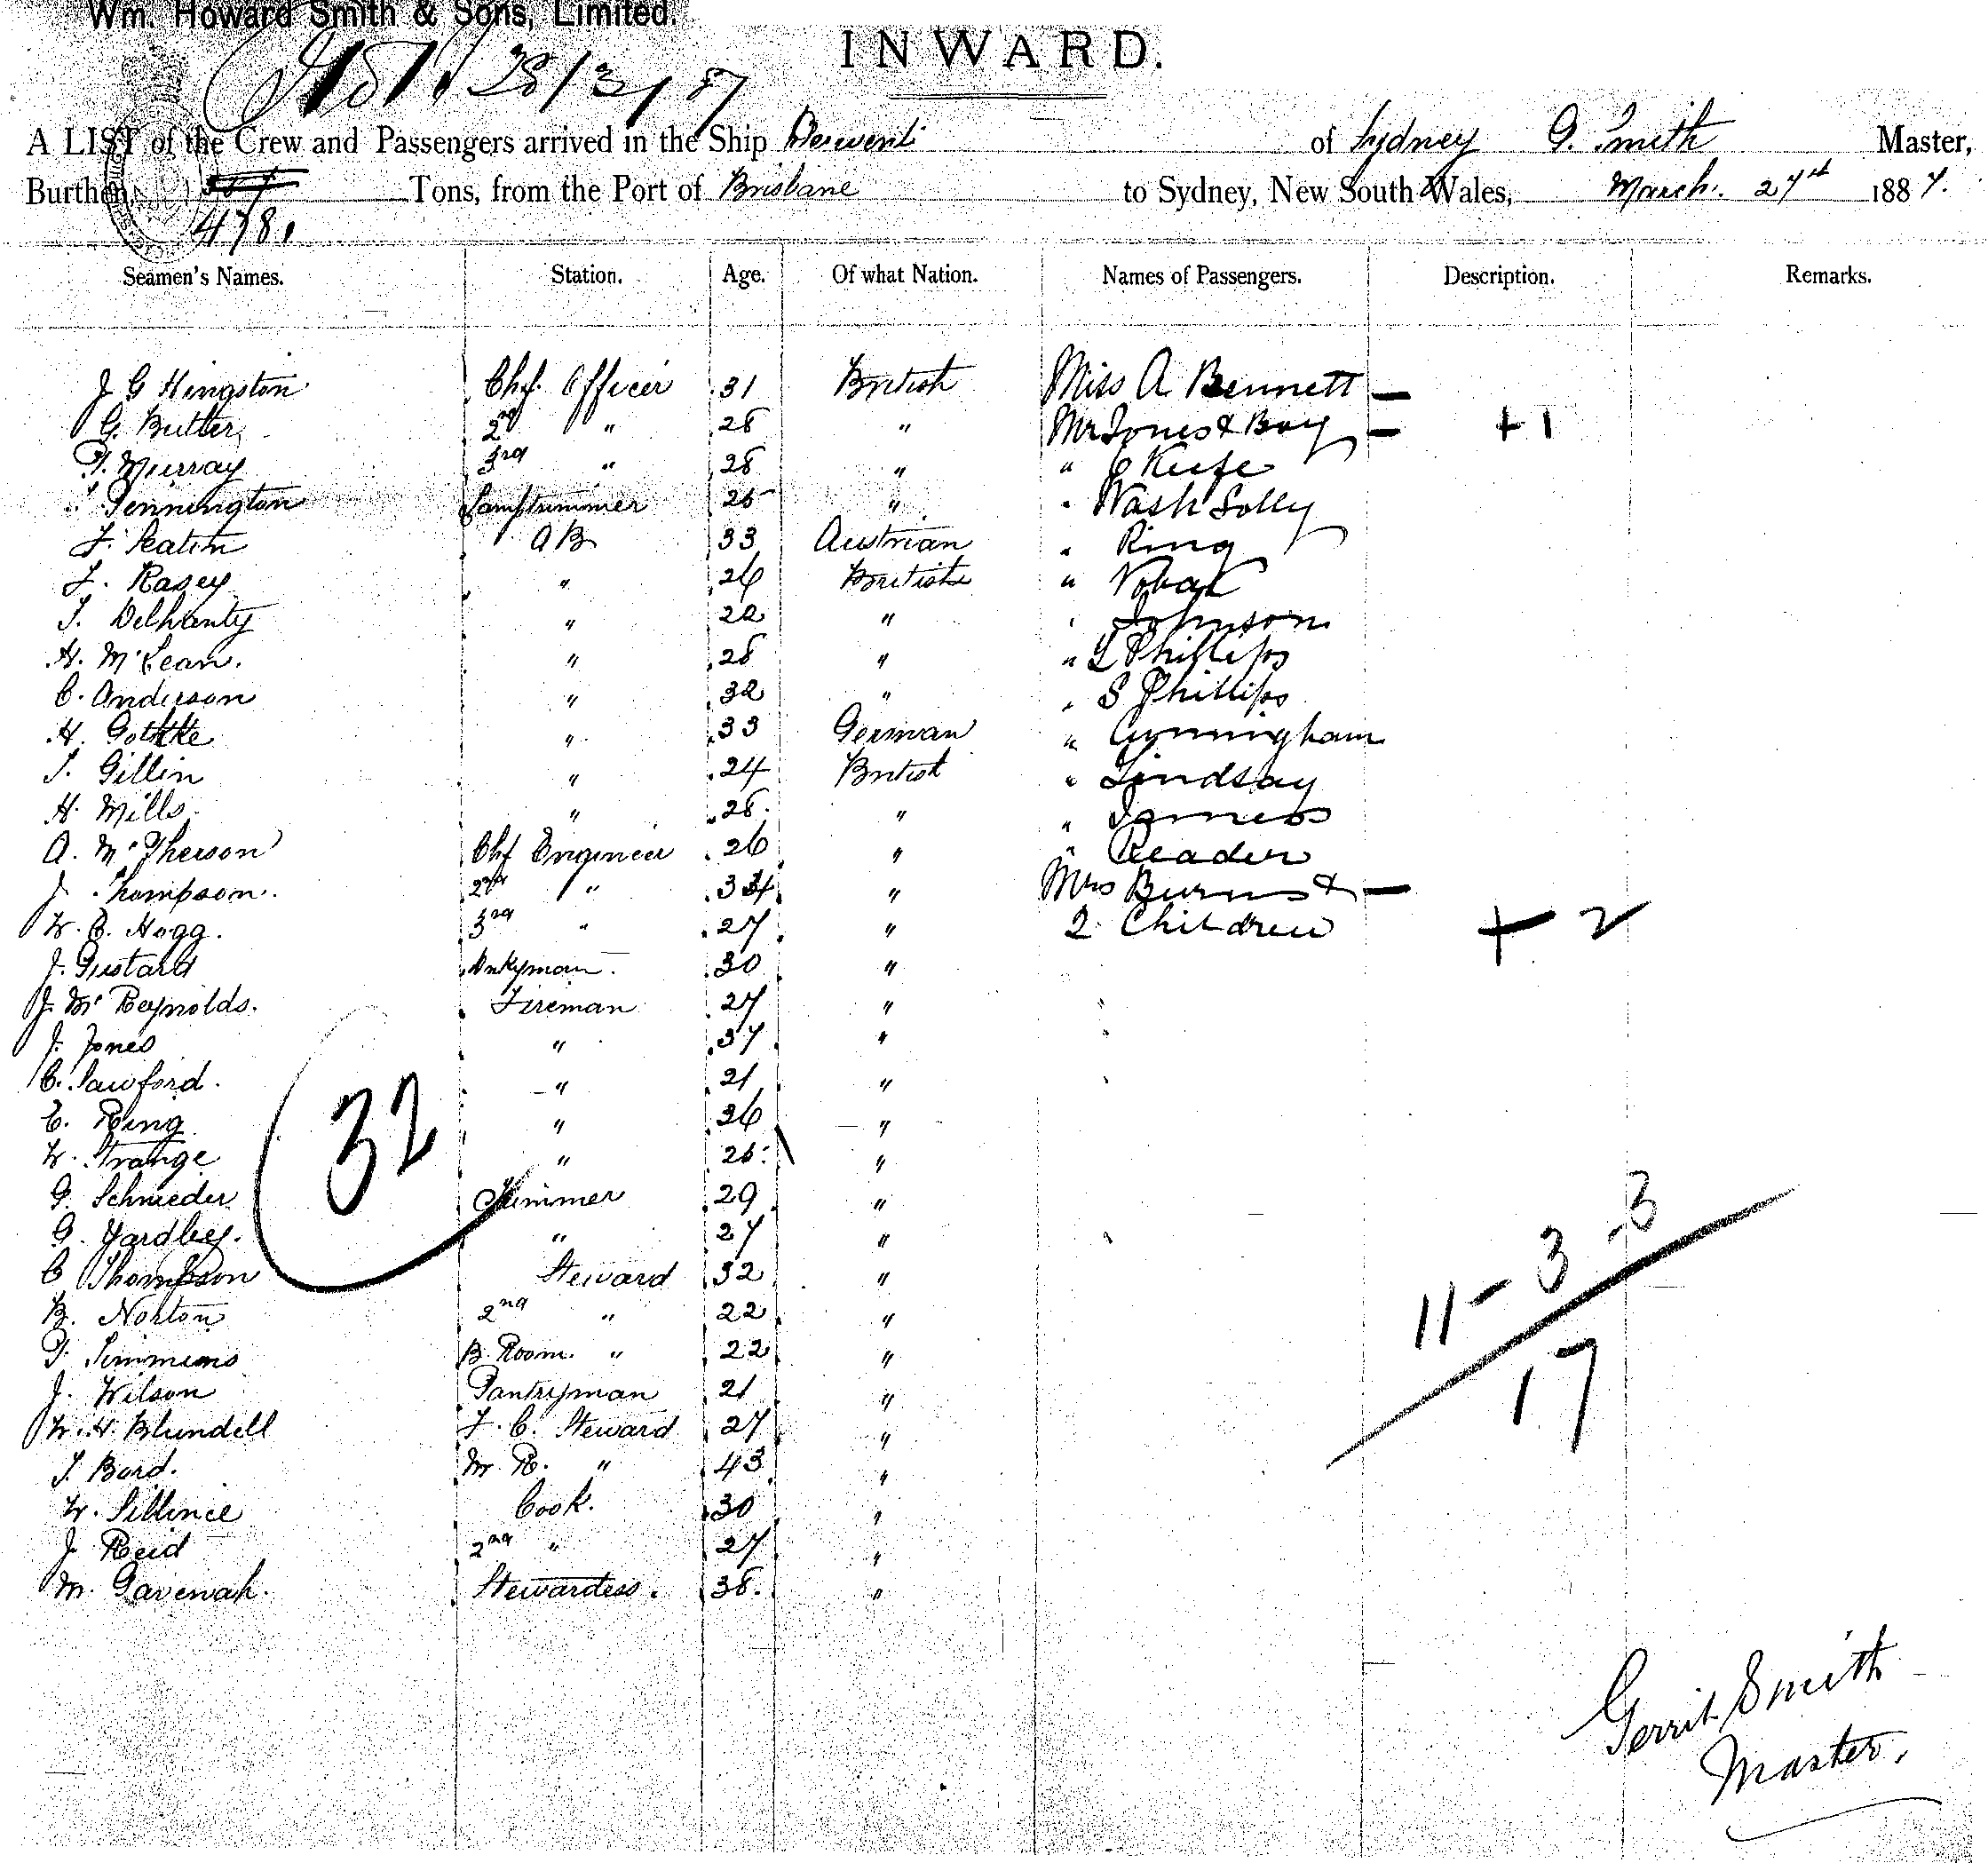 Wm. Howard Smith & Sons, Limited.
28/3/87
INWARD.
A LIST of the Crew and Passengers arrived in the Ship Derwent of Sydney G. Smith Master,
Burthen 478. Tons, from the Port of Brisbane to Sydney, New South Wales, March. 27th 1887.
Seamen's Names. Station. Age. Of what Nation. Names of Passengers. Description. Remarks.
J G Hingston Chf. Officer 31 British Miss A Bennett –
G. Butler 2nd " 28 " Mr Jones & Boy – + 1
P. Murray 3rd " 28 " " O Keefe
Pennington Lamptrimmer 25 " " Nash Solly
A B 33 Austrian " Ring
F. Rasey " 26 British " Novak
T. Delhanty " 22 " " Johnson
H. McLean. " 28 " " L Phillips
C. Anderson " 32 " " S Phillips
H. Gothke " 33 German " Cunningham
T. Gillin " 24 British " Lindsay
H. Mills " 28 " " James
A. McPherson Chf Engineer 26 " " Reader
J. Thompson. 2nd " 34 " Mrs Burns & –
W. C. Hogg. 3rd " 27 " 2 Children + 2
J. Gustard Dnkyman. 30 "
J. Mc Reynolds. Fireman 27 "
J. Jones " 37 "
C. Sawford. " 21 "
C. Ring " 26 "
W. Strange " 25 "
G. Schnieder Trimmer 29 "
G. Yardley. " 27 "
C Thompson Steward 32 "
B. Norton 2nd " 22 "
P. Simmons B. Room. " 22 "
J. Wilson Pantryman 21 "
W. H. Blundell F. C. Steward 27 "
T. Bord. M. R. " 43 "
W. Sillince Cook. 30 "
J Reid 2nd " 27 "
M. Gavenah. Stewardess. 38. "
32
11 - 3 - 3
17
Gerrit Smith
Master.